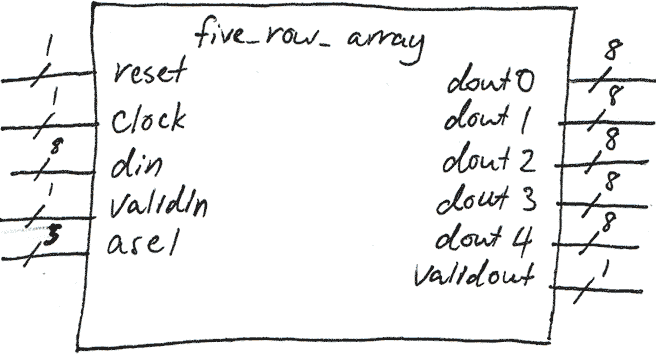 five_row_array
1 reset
1 clock
8 din
1 validIn
asel
dout0 8
dout1 8
dout2 8
dout3 8
dout4 8
validout 1